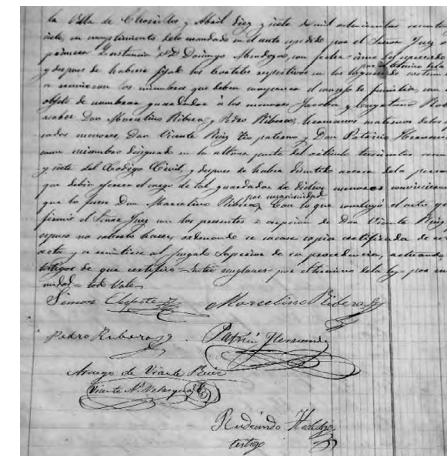 la Villa de Chosicltes y Abril diez y siete de mil ochocientos noventa
siete, en cumplimiento de lo mandado en el auto expedido por el Señor Juez de
primera Instancia D. Domingo Mendoza, con fecha
y despues de haberse fijado los carteles respectivos en los lugares de costumbre
se reunieron los miembros que deben componer el consejo de familia, con el
objeto de nombrar guardador á los menores Jacoba y
saber Don Marcelino Ribera, Pedro Ribera, hermanos maternos de los
citados menores, Don Vicente Ruiz tio paterno y Don Patricio Hernandez
como miembro designado en la ultima parte del articulo trescientos
y siete del Codigo Civil, y despues de haber discutido acerca de la persona
que debia ejercer el cargo de tal guardador de dichos menores convinieron
por unanimidad
que lo fuera Don Marcelino Ribera; Con lo que concluyó el acto que
firmó el Señor Juez con los presentes á escepcion de Don Vicente Ruiz
espuso no saberlo hacer, ordenando se sacase copia certificada de esta
acta y se remitiese al Juzgado Superior de su procedencia, actuando
testigos de que certifico = Entre renglones por el termino de la ley = por una
nimidad = todo Vale =
Simon Marcelino Ribera
Pedro Ribera Patricio Hernandez
Arruego de Vicente Ruiz
Vicente N. Velasquez
Rudecindo Hidalgo
testigo